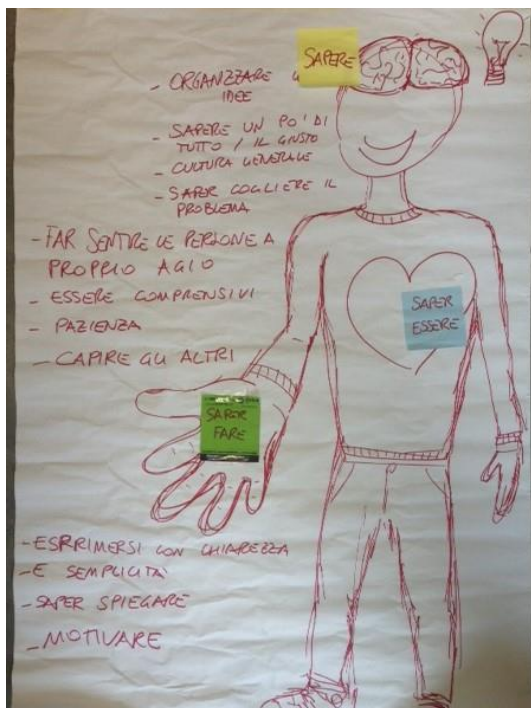 SAPERE
- ORGANZZARE LE
IDEE
- SAPERE UN PO' DI
TUTTO / IL GIUSTO
- CULTURA GENERALE
- SAPER COGLIERE IL
PROBLEMA
- FAR SENTIRE LE PERSONE A
PROPRIO AGIO
- ESSERE COMPRENSIVI
- PAZIENZA
- CAPIRE GLI ALTRI
SAPER
ESSERE
SAPER
FARE
- ESPRIMERSI CON CHIAREZZA
- E SEMPLICITÀ
- SAPER SPIEGARE
- MOTIVARE